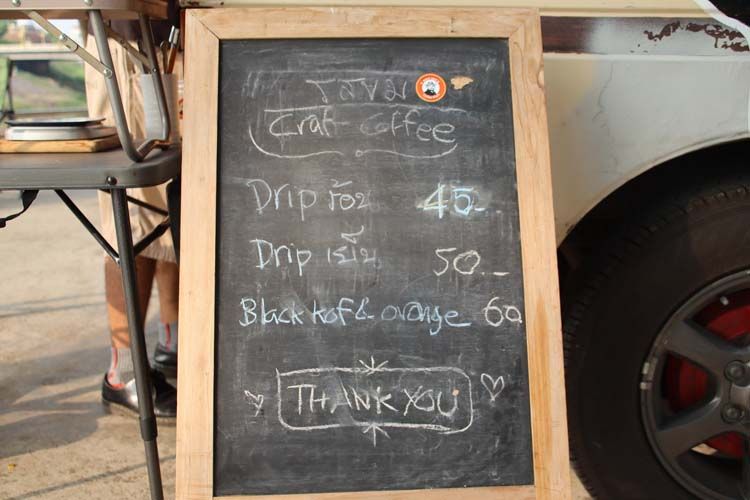 รสขม
Craft Coffee
Drip ร้อน 45.-
Drip เย็น 50.-
Black kof & orange 60
THANK YOU